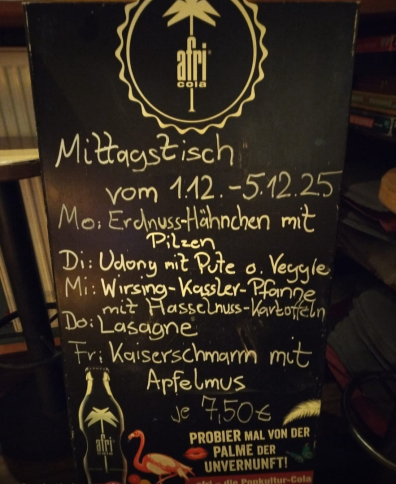 afri
cola
Mittagstisch
vom 1.12.-5.12.25
Mo: Erdnuss-Hähnchen mit
Pilzen
Di: Udony mit Pute o. Veggie
Mi: Wirsing-Kassler-Pfanne
mit Hasselnuss-Kartoffeln
Do: Lasagne
Fr: Kaiserschmarrn mit
Apfelmus
je 7,50€
afri
PROBIER MAL VON DER
PALME DER
UNVERNUNFT!
die Popkultur-Cola